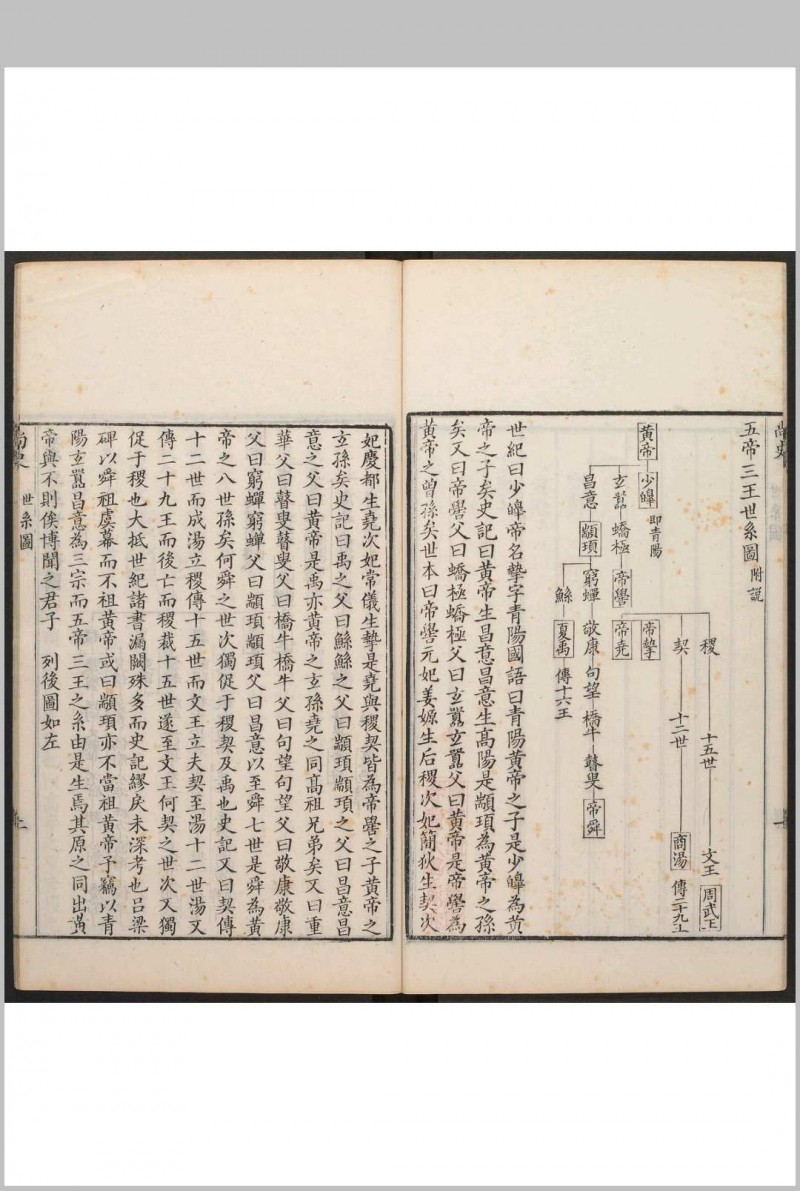 五帝三王世系圖 附說
稷 十五世 文王 周武王
契 十二世 商湯 傳二十九王
黃帝 少皥 即青陽
帝摯
玄囂 蟜極 帝嚳 帝堯
昌意 顓頊 窮蟬 敬康 句望 橋牛 瞽叟 帝舜
鯀 夏禹 傳十六王
世紀曰少皥帝名摯字青陽國語曰青陽黃帝之子是少皥為黃
帝之子矣史記曰黃帝生昌意昌意生高陽是顓頊為黃帝之孫
矣又曰帝嚳父曰蟜極蟜極父曰玄囂玄囂父曰黃帝是帝嚳為
黃帝之曾孫矣世本曰帝嚳元妃姜嫄生后稷次妃簡狄生契次
妃慶都生堯次妃常儀生摯是堯與稷契皆為帝嚳之子黃帝之
玄孫矣史記曰禹之父曰鯀鯀之父曰顓頊顓頊之父曰昌意昌
意之父曰黃帝是禹亦黃帝之玄孫堯之同高祖兄弟矣又曰重
華父曰瞽叟瞽叟父曰橋牛橋牛父曰句望句望父曰敬康敬康
父曰窮蟬窮蟬父曰顓頊顓頊父曰昌意以至舜七世是舜為黃
帝之八世孫矣何舜之世次獨促于稷契及禹也史記又曰契傳
十二世而成湯立稷傳十五世而文王立夫契至湯十二世湯又
傳二十九王而後亡而稷裁十五世遂至文王何契之世次又獨
促于稷也大抵世紀諸書漏闕殊多而史記繆戾未深考也呂梁
碑以舜祖虞幕而不祖黃帝或曰顓頊亦不當祖黃帝予竊以青
陽玄囂昌意為三宗而五帝三王之系由是生焉其原之同出黃
帝與不則俟博聞之君子 列後圖如左
尚史 世系圖